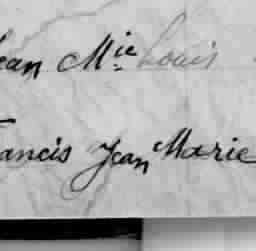 Jean Mie Louis
Francis Jean Marie